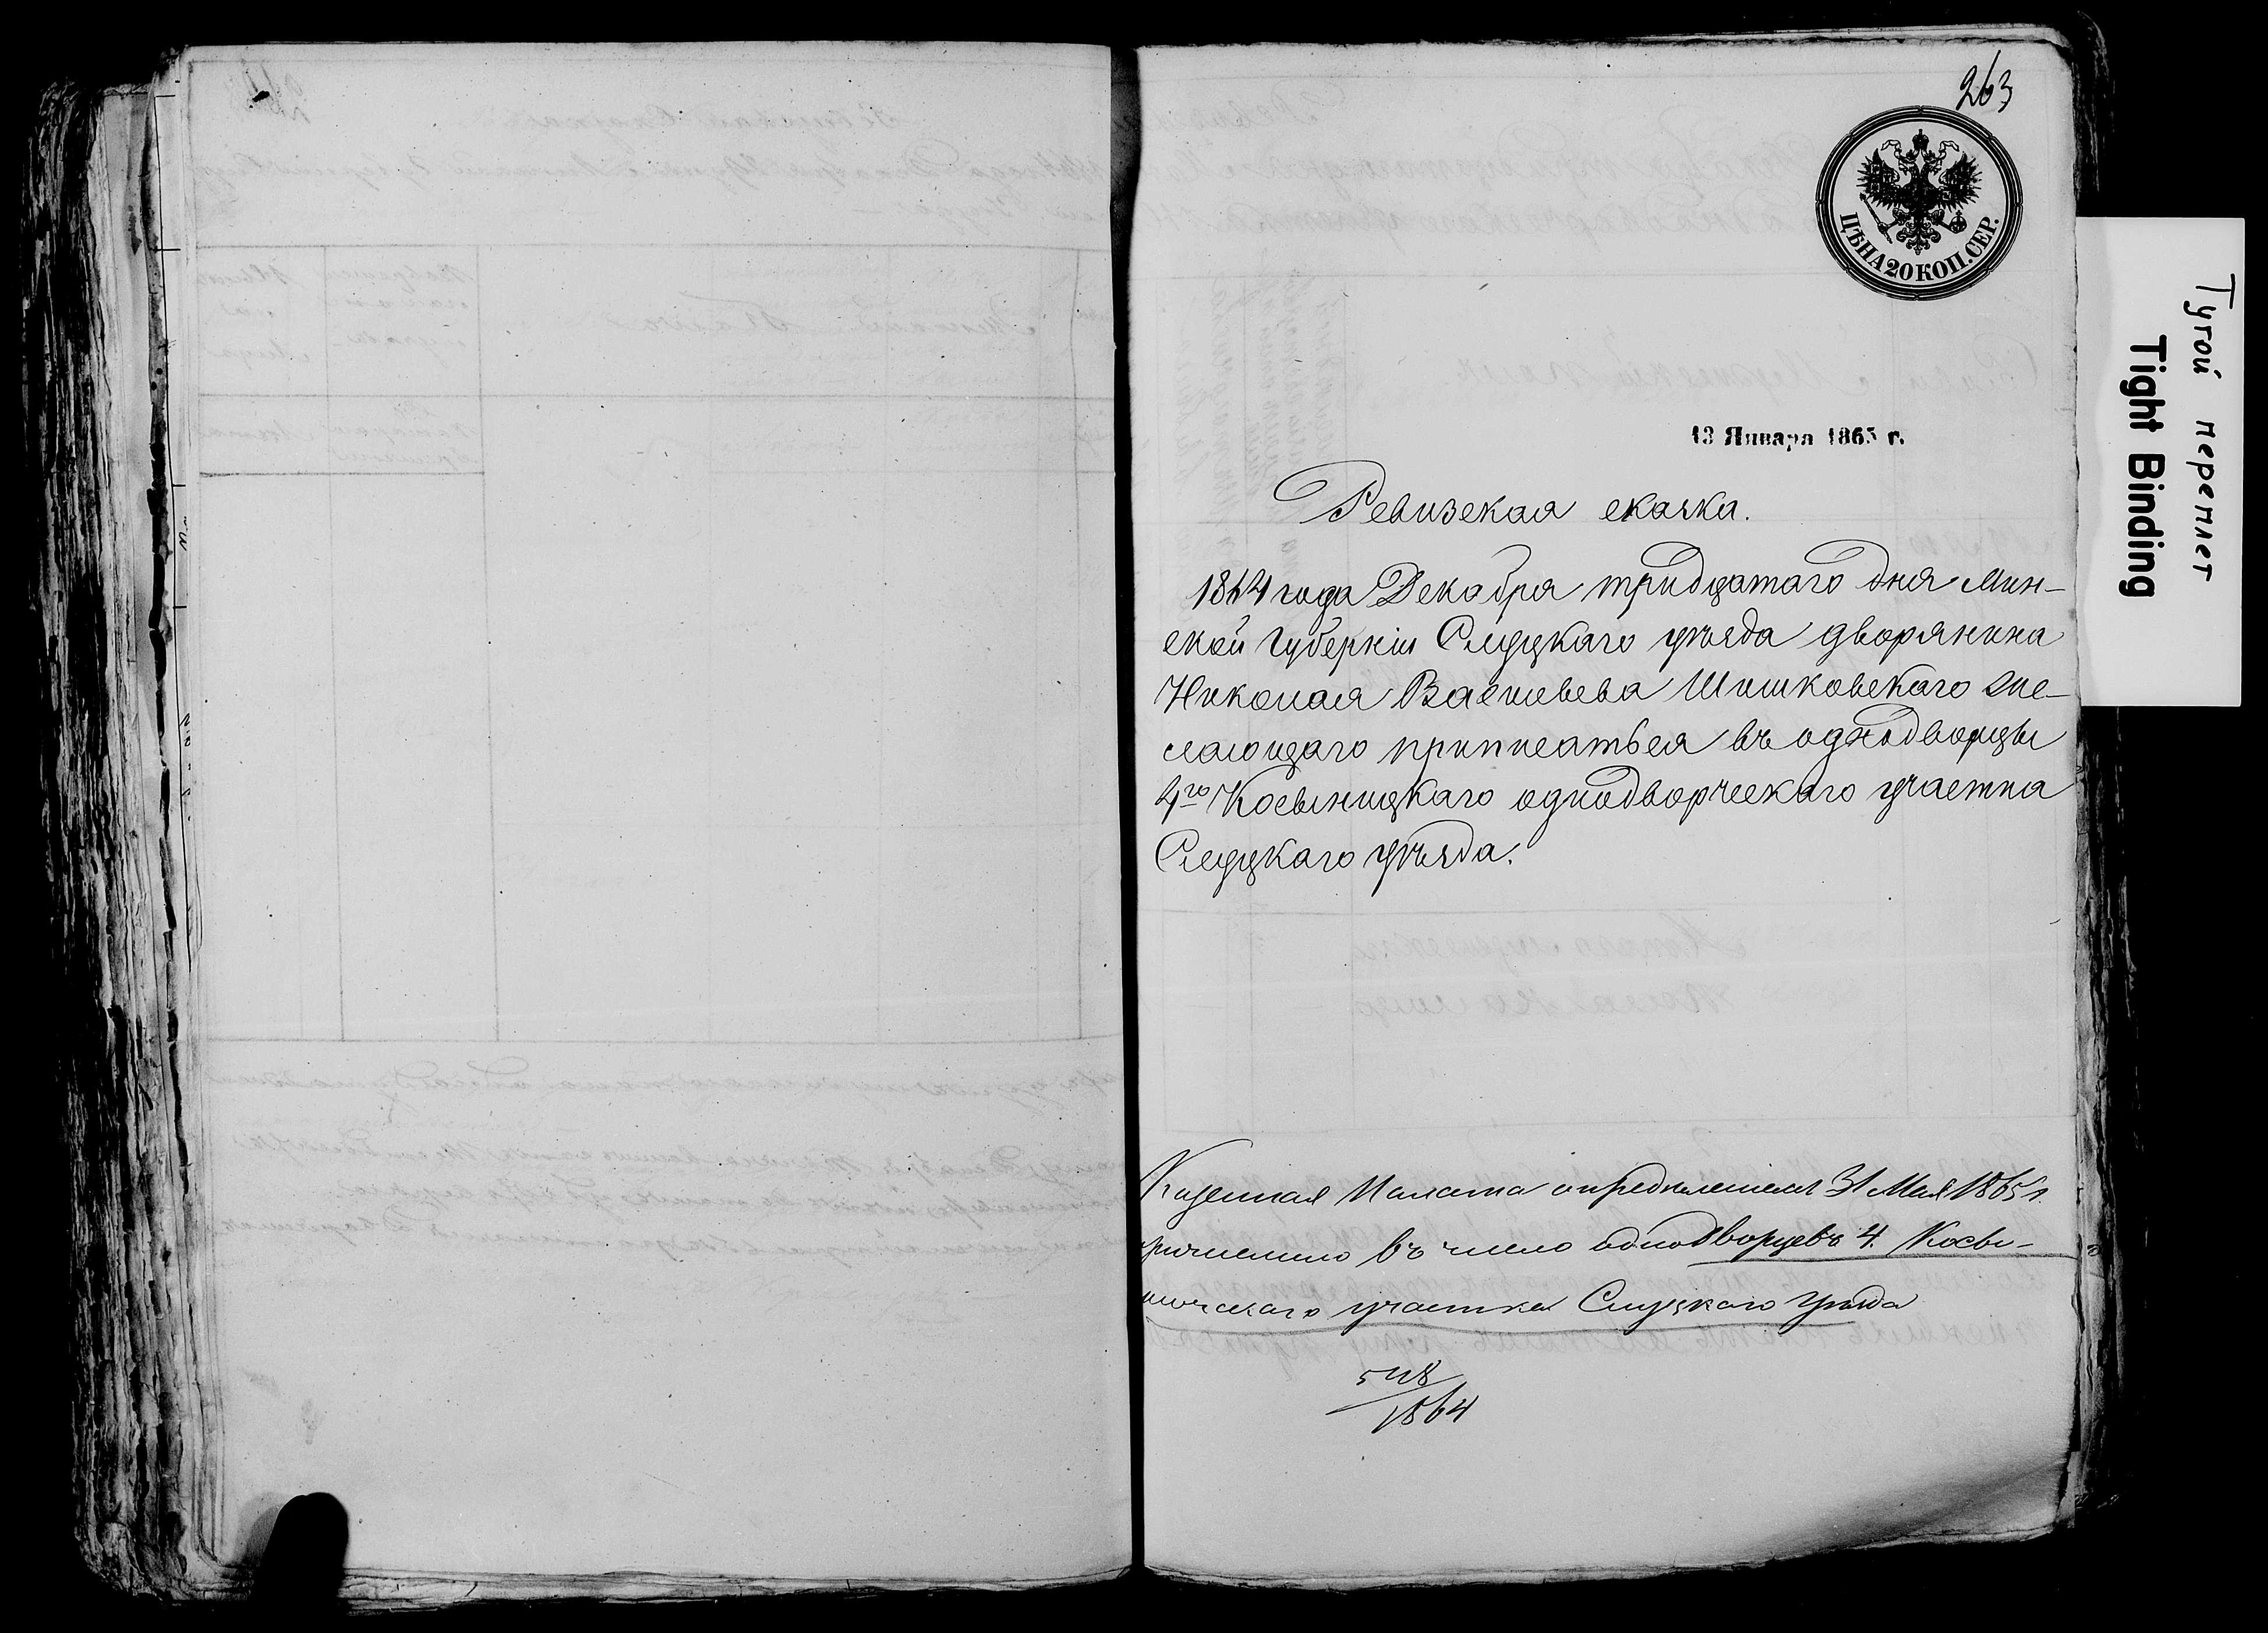 263
ЦѢНА 20 КОП. СЕР.
13 Января 1865 г.
Ревизская сказка.
1864 года Декабря тридцатаго дня Мин-
ской Губерніи Слуцкаго уѣзда дворянина
Николая Васильева Шишковскаго же-
лающаго приписаться въ однодворцы
4го Косыницкаго однодворческаго участка
Слуцкаго уѣзда.
Казенная Палата опредѣленіем 31 Мая 1865 г.
причислило въ число однодворцевъ 4. Косы-
ничскаго участка Слуцкаго Уѣзда
548
1864
Тугой переплет
Tight Binding